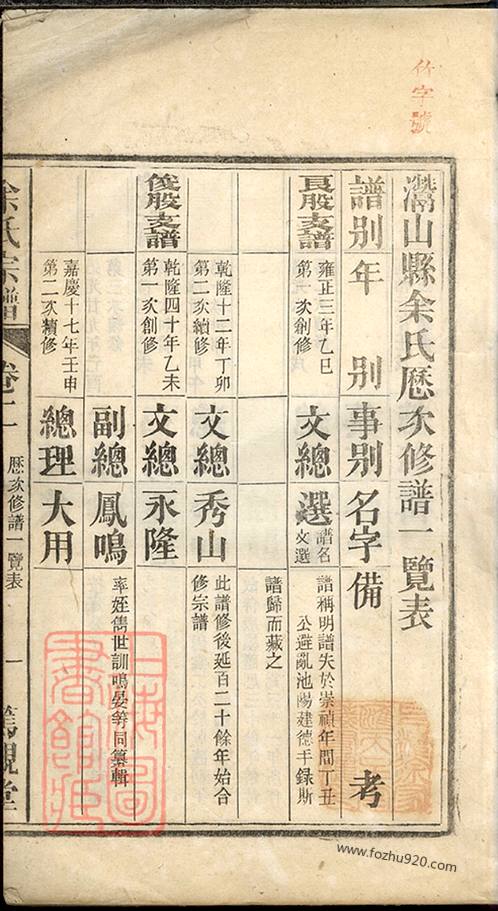 竹字號
灊山縣余氏歷次修譜一覽表
譜別 年別 事別 名字 備考
良股支譜 雍正三年乙巳 文總 選 譜名 譜稱明譜失於崇禎年間丁丑
第一次創修 文選 公避亂池陽建德干録斯
譜歸而藏之
乾隆十二年丁卯 文總 秀山 此譜修後延百二十餘年始合
第二次續修 修宗譜
俊股支譜 乾隆四十年乙未 文總 永隆
第一次創修
副總 鳳鳴 率姪雋世訓鳴晏等同纂輯
嘉慶十七年壬申 總理 大用
第二次續修
余氏宗譜 卷一 歷次修譜一覽表 一 篤親堂
上海圖書館藏
www.fozhu920.com